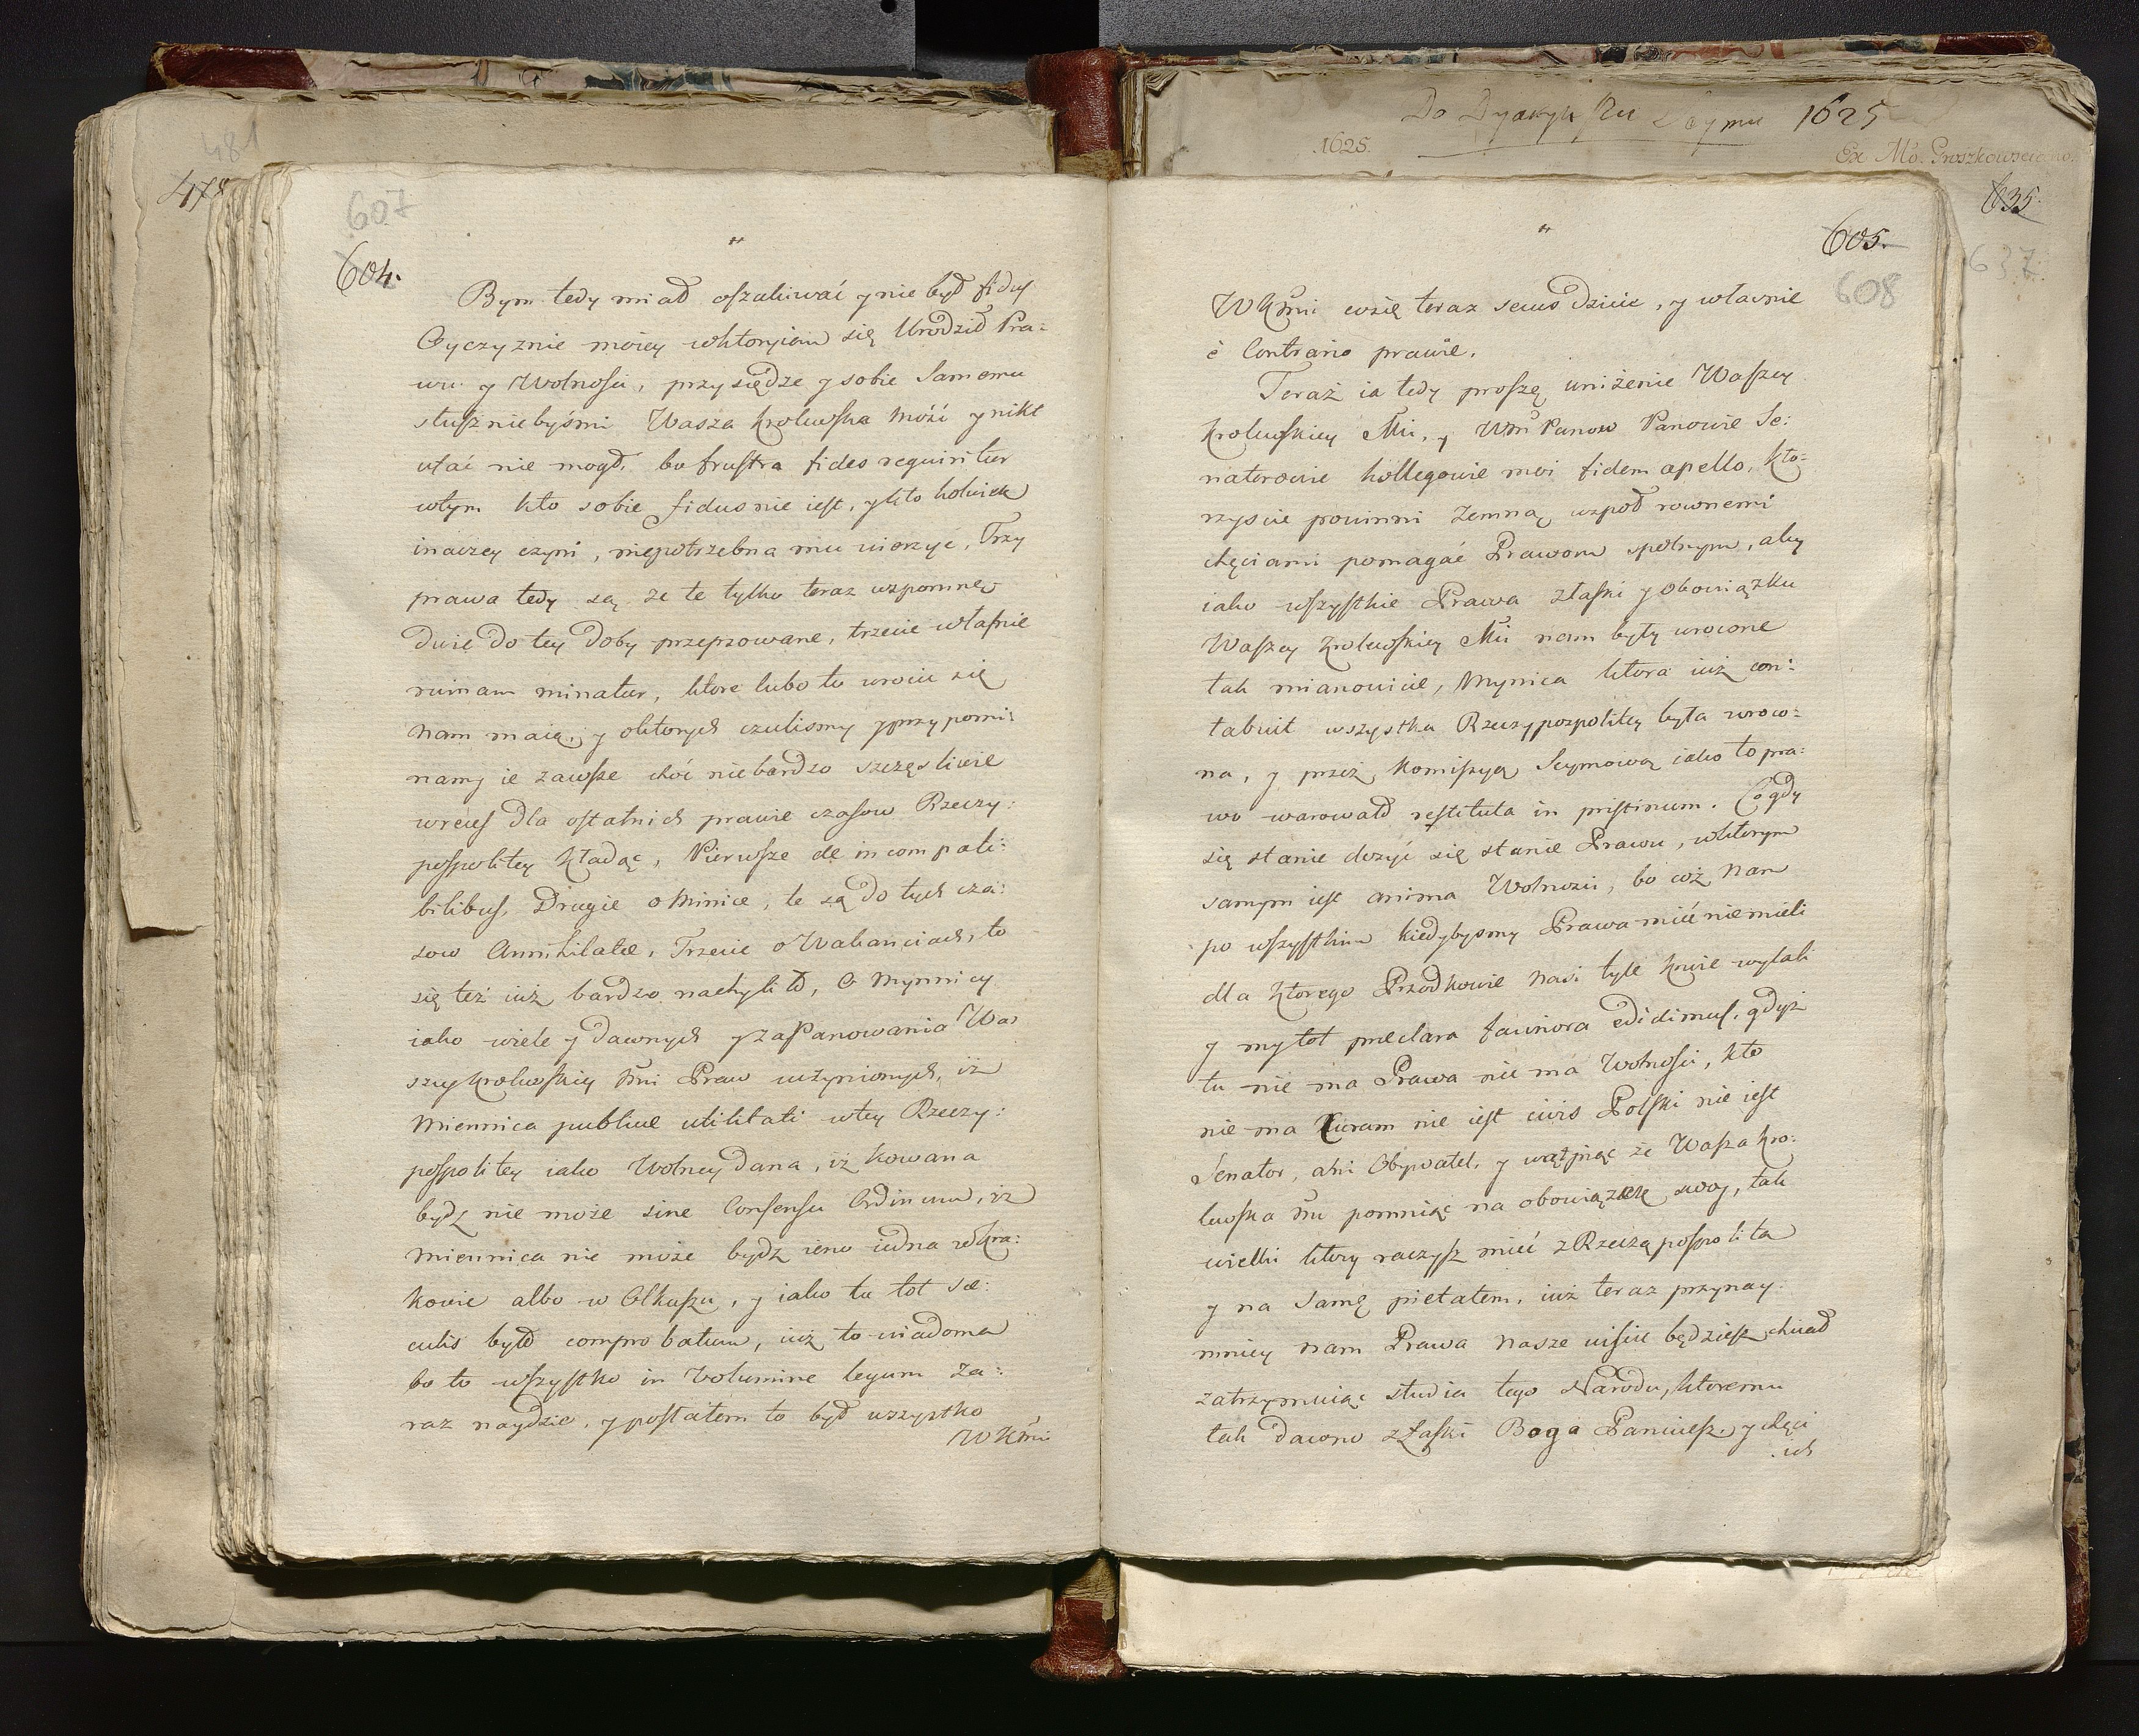 481
478
607
604.
Bym tedy miał oszukiwać y nie być fidus
Oyczyznie moiey wktoryiem się Urodził Pra-
wu y Wolnosci, przysiędze y sobie Samemu
słusznie byśmi Wasza Krolewska Mość y nikt
ufać nie mogł, bo frustra fides requiritur
wtym kto sobie fidus nie iest, y kto kolwiek
inaczey czyni, niepotrzebna mu wierzyć, Trzy
prawa tedy są że te tylko teraz wspomnę
dwie do tey doby przeprzowane, trzecie własnie
ruinam minatur, ktore lubo tu wrocic się
nam maią, y oktorych czulismy y przypomi:
namy ie zawsze choć nie bardzo szczęsliwie
wreus dla ostatnich prawie czasow Rzeczy:
pospolitey kładąc, Pierwsze de incompati:
bilibus, Drugie o Minice, te są do tych cza:
sow Annihilatæ, Trzecie o Wakanciach, to
się też iuż bardzo nachyliło, O Mynnicy
iako wiele y dawnych y za Panowania Wa:
szey Krolewskiey Mci Praw uczynionych, iż
Miennica publicæ utilitati wtey Rzeczy:
pospolitey iako Wolney dana, iż kowana
bydź nie może sine Consensu Ordinum, iż
Miennica nie może bydź ieno iedna w Kra:
kowie albo w Olkuszu, y iako tu tot sæ:
culis było comprobatum, iuż to wiadoma
bo to wszystko in Volumine legum Za:
raz naydzie, y postatem to być wszystko
WKMci
Do Dyaryuszu Seymu 1625
1625.
Ex Mo. Proszkowsciano.
635.
637.
605.
608
WKMci cosię teraz secus dzieie, y własnie
è Contrario prawie.
Teraz ia tedy proszę uniżenie Waszey
Krolewskiey Mci, y WM Panow Panowie Se:
natorowie kollegowie moi fidem apello, kto:
rzyscie powinni Zemną wspoł rownemi
chęciami pomagać Prawom spolnym, aby
iako wszystkie Prawa złaski y obowiązku
Waszey Krolewskiey Mci nam były wrocone
tak mianowicie, Mynica ktora iuż con:
tabuit wszystka Rzeczypospolitey była wroco:
na, y przez Komissyą Seymową iako to pra:
wo warowało restituta in pristinum. Co gdy
się stanie dosyć się stanie Prawu, wktorym
samym iest anima Wolnosci, bo coż Nam
po wszystkim kiedybysmy Prawa mieć nie mieli
dla ktorego Przodkowie nasi tyle krwie wylali
y my tot præclara facinora edidimus, gdyż
tu nie ma Prawa nie ma Wolnosci, kto
nie ma Curam nie iest civis Polski nie iest
Senator, ani Obywatel, y wątpiąc że Wasza Kro:
lewska Mc pomniąc na obowiązek swoy, tak
wielki ktory raczysz mieć z Rzecząpospolita
y na Samę pietatem, iuż teraz przynay:
mniey nam Prawa nasze uiscic będziesz chciał
zatrzymuiąc studia tego Narodu, ktoremu
tak dawno z Łaski Boga Paniuesz, y chęci
ich